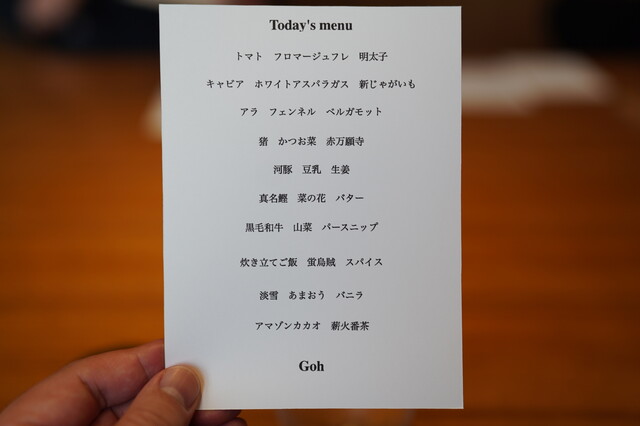 Today's menu
トマト　フロマージュフレ　明太子
キャビア　ホワイトアスパラガス　新じゃがいも
アラ　フェンネル　ベルガモット
猪　かつお菜　赤万願寺
河豚　豆乳　生姜
真名鰹　菜の花　バター
黒毛和牛　山菜　パースニップ
炊き立てご飯　蛍烏賊　スパイス
淡雪　あまおう　バニラ
アマゾンカカオ　薪火番茶
Goh